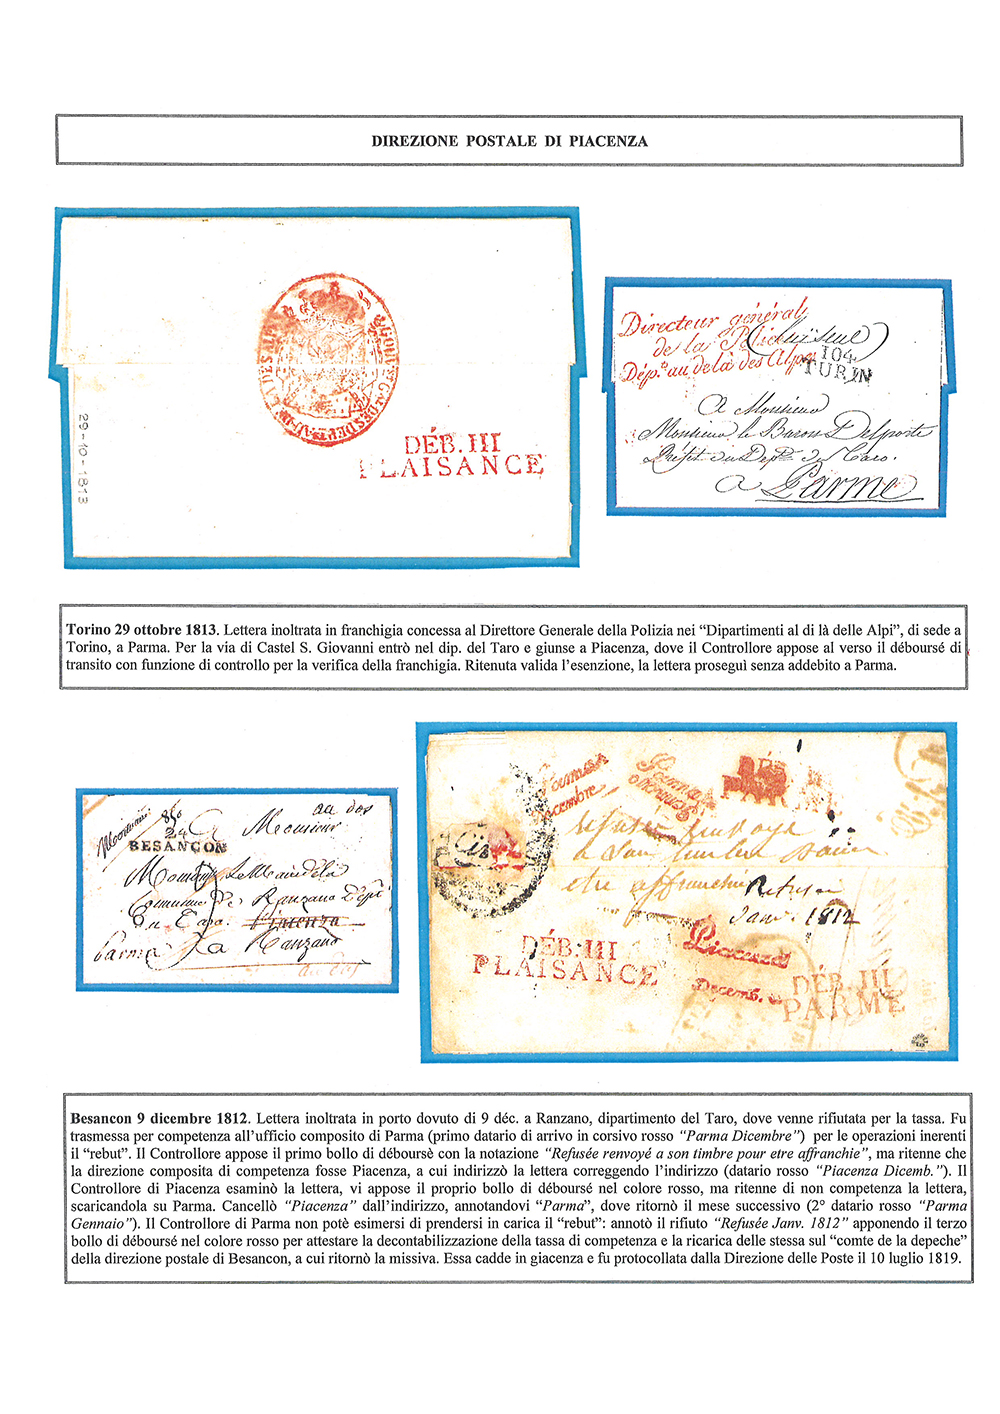 DIREZIONE POSTALE DI PIACENZA
DÉB. III
PLAISANCE
29-10-1813
Directeur général
de la Police
Dép.ts au delà des Alpes
104
TURIN
A Monsieur
Monsieur le Baron Delporte
Préfet du Dépt. du Taro.
à Parme
Torino 29 ottobre 1813. Lettera inoltrata in franchigia concessa al Direttore Generale della Polizia nei “Dipartimenti al di là delle Alpi”, di sede a
Torino, a Parma. Per la via di Castel S. Giovanni entrò nel dip. del Taro e giunse a Piacenza, dove il Controllore appose al verso il déboursé di
transito con funzione di controllo per la verifica della franchigia. Ritenuta valida l’esenzione, la lettera proseguì senza addebito a Parma.
au dos
Monsieur
BESANCON
Monsieur Le Maire de la
Commune De Ranzano Dépt
Du Taro. Piacenza
Parma à Ranzano
au dos
Parma
Dicembre
Parma
DÉB. III
PARME
refusée renvoyé
a son timbre pour
etre affranchie
Refusée
Janv. 1812
DÉB. III
PLAISANCE
Piacenza
Decemb.
DÉB. III
PARME
Besancon 9 dicembre 1812. Lettera inoltrata in porto dovuto di 9 déc. a Ranzano, dipartimento del Taro, dove venne rifiutata per la tassa. Fu
trasmessa per competenza all’ufficio composito di Parma (primo datario di arrivo in corsivo rosso “Parma Dicembre”) per le operazioni inerenti
il “rebut”. Il Controllore appose il primo bollo di déboursè con la notazione “Refusée renvoyé a son timbre pour etre affranchie”, ma ritenne che
la direzione composita di competenza fosse Piacenza, a cui indirizzò la lettera correggendo l’indirizzo (datario rosso “Piacenza Dicemb.”). Il
Controllore di Piacenza esaminò la lettera, vi appose il proprio bollo di déboursé nel colore rosso, ma ritenne di non competenza la lettera,
scaricandola su Parma. Cancellò “Piacenza” dall’indirizzo, annotandovi “Parma”, dove ritornò il mese successivo (2° datario rosso “Parma
Gennaio”). Il Controllore di Parma non potè esimersi di prendersi in carica il “rebut”: annotò il rifiuto “Refusée Janv. 1812” apponendo il terzo
bollo di déboursé nel colore rosso per attestare la decontabilizzazione della tassa di competenza e la ricarica delle stessa sul “comte de la depeche”
della direzione postale di Besancon, a cui ritornò la missiva. Essa cadde in giacenza e fu protocollata dalla Direzione delle Poste il 10 luglio 1819.